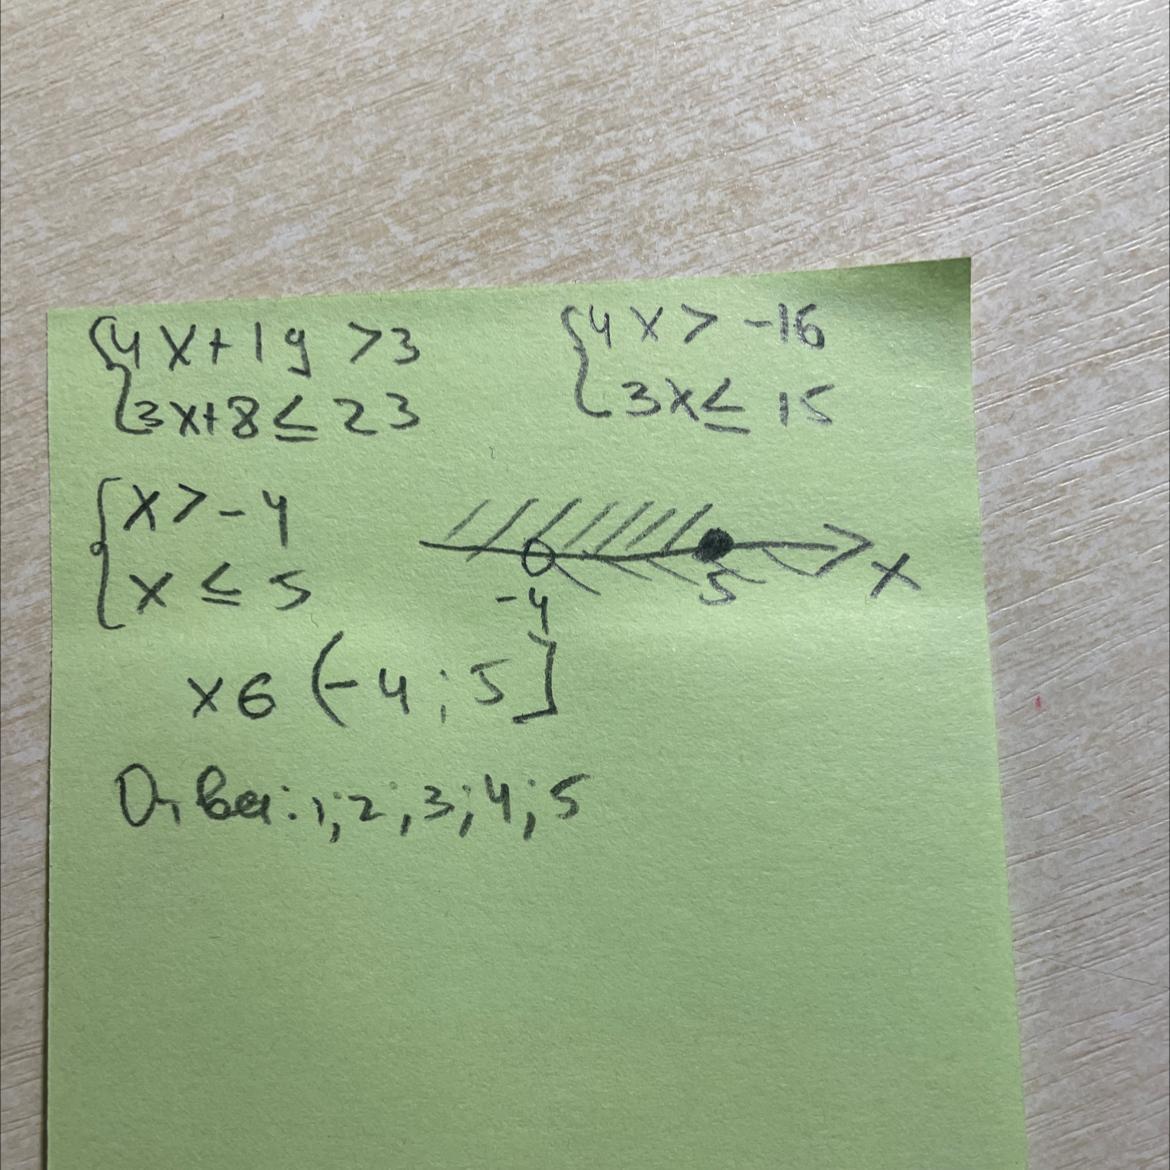 {4x+19 >3
{3x+8≤23
{4x>-16
{3x≤15
{x>-4
{x≤5
-4 5 x
x∈(-4;5]
Ответ: 1;2;3;4;5